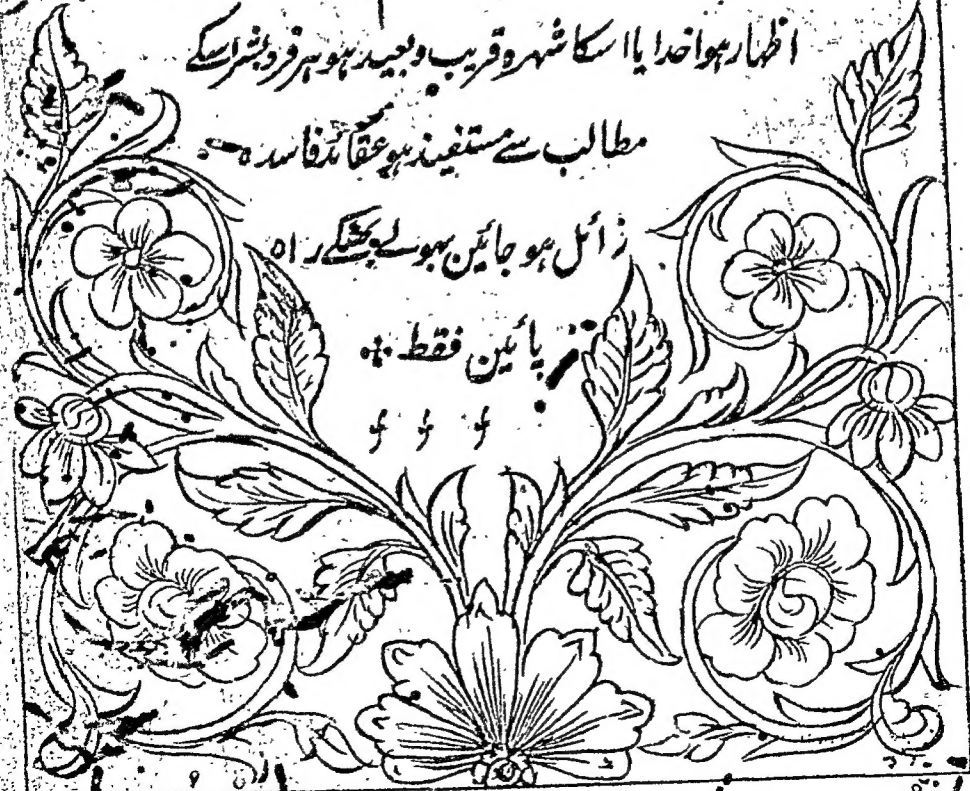 اظہار ہوا خدایا اسکا شہرہ قریب و بعید ہو ہر فرد بشر اسکے
مطالب سے مستفید ہو عقائد فاسدہ
زائل ہو جائین بھولے بھٹکے راہ
پائین فقط